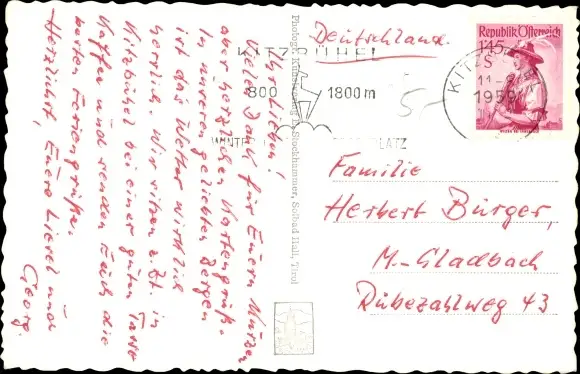 Ihr Lieben!
Viel Dank für Euern kurzen
aber herzlichen Kartengruß.
In unseren geliebten Bergen
ist das Wetter wirklich
herrlich. Wir sitzen z.Zt. in
Kitzbühel bei einer guten Tasse
Kaffee und senden Euch die
besten Feriengrüße.
Herzlichst, Eure Liesel und
Georg.
Photogr. Kunstverlag Stockhammer, Solbad Hall, Tirol
Deutschland.
KITZBÜHEL
800 1800 m
PLATZ
5-
Republik Österreich
1.45
S
KITZ
1959
Familie
Herbert Bürger,
M.-Gladbach
Rübezahlweg 43